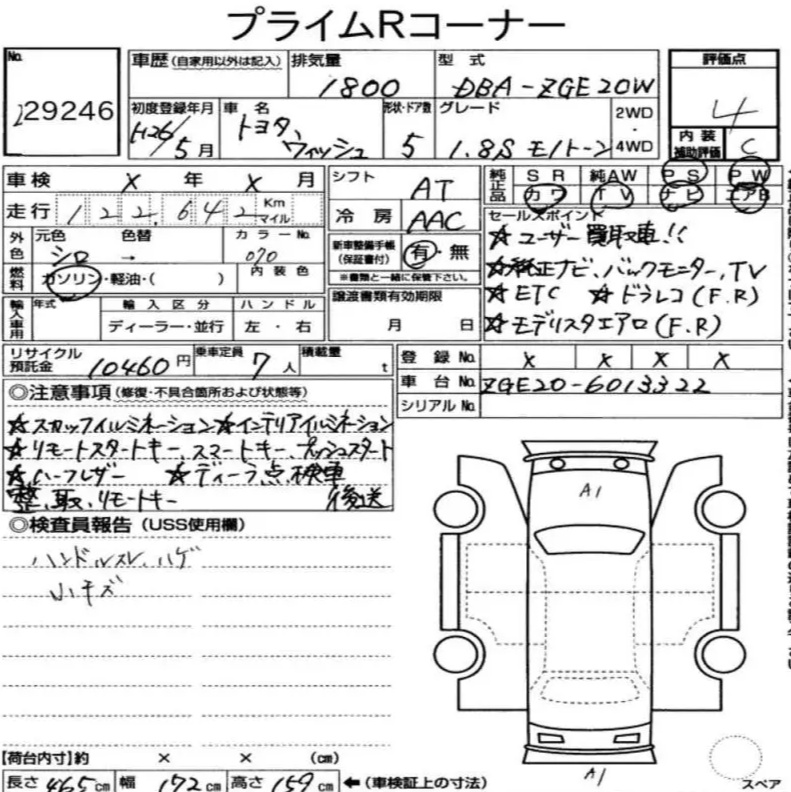 プライムRコーナー
No. 29246
車歴 (自家用以外は記入) 排気量 1800 型式 DBA-ZGE20W 評価点 4
初度登録年月 H26/5月 車名 トヨタ、ウィッシュ 形状・ドア数 5 グレード 1.8S モノトーン 2WD・4WD 内装補助評価 C
車検 X年X月 シフト AT 純正品 SR 純AW PS PW
カワ TV ナビ エアB
走行 122,642 Km マイル 冷房 AAC
外色 元色 シロ 色替 → カラーNo. 070 新車整備手帳(保証書付) 有・無
※書類と一緒に保管下さい。
燃料 ガソリン・軽油・( ) 内装色
セールスポイント
☆ユーザー買取車!!
☆純正ナビ、バックモニター、TV
☆ETC ☆ドラレコ(F.R)
☆モデリスタエアロ(F.R)
輸入車用 年式 輸入区分 ディーラー・並行 ハンドル 左・右 譲渡書類有効期限 月 日
リサイクル預託金 10460円 乗車定員 7人 積載量 t 登録No. X X X X
車台No. ZGE20-6013322
シリアルNo.
◎注意事項 (修復・不具合箇所および状態等)
☆スカッフイルミネーション☆インテリアイルミネーション
☆リモートスタートキー、スマートキー、プッシュスタート
☆ハーフレザー ☆ディーラー点検車
整、取、リモートキー 後送
◎検査員報告 (USS使用欄)
ハンドルスレ、ハゲ
小キズ
A1
A1
スペア
【荷台内寸】約 × × (cm)
長さ 465cm 幅 172cm 高さ 159cm ←(車検証上の寸法)